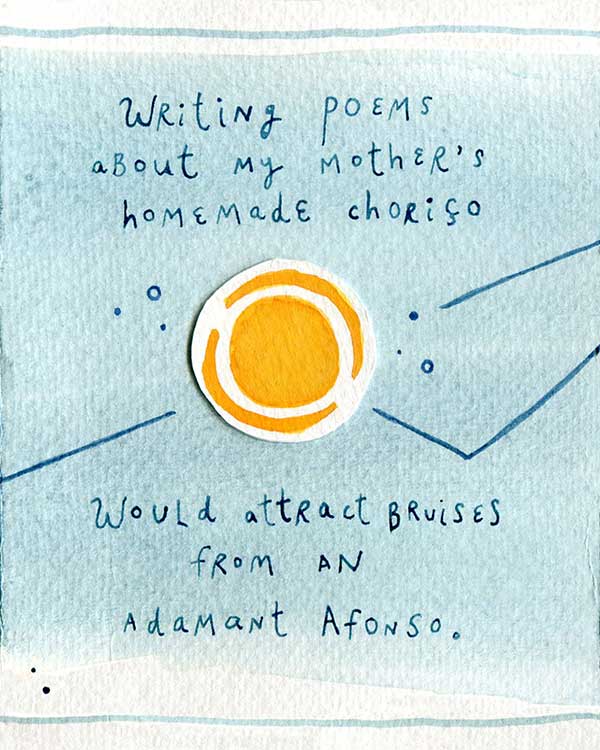 Writing poems
about my mother's
homemade choriço
Would attract bruises
from an
Adamant Afonso.